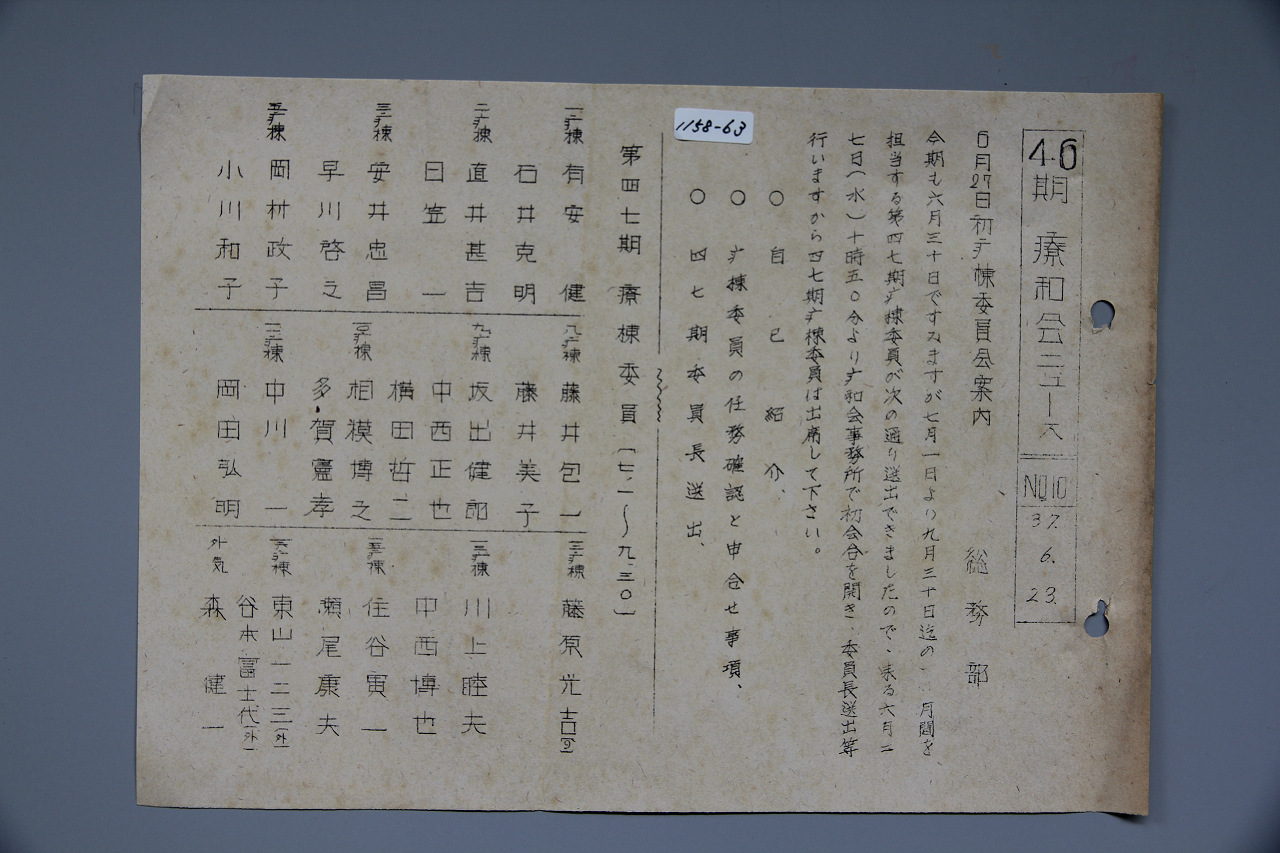 46期 療和会ニュース NO10 37. 6. 23.
6月27日初疒棟委員会案内
総務部
今期も六月三十日ですみますが七月一日より九月三十日迄の 月間を
担当する第四七期疒棟委員が次の通り送出できましたので、来る六月二
七日(水)十時五〇分より疒和会事務所で初会合を開き、委員長送出等
行いますから四七期疒棟委員は出席して下さい。
○自己紹介、
○疒棟委員の任務確認と申合せ事項、
○四七期委員長送出、
1158-63
第四七期療棟委員(七、一〜九、三〇)
一疒棟 有安健
石井克明
二疒棟 直井甚吉
日笠一
三疒棟 安井忠昌
早川啓之
五疒棟 岡村政子
小川和子
八疒棟 藤井包一
藤井美子
九疒棟 坂出健郎
中西正也
横田哲二
一〇疒棟 相模博之
多賀憲孝
一二疒棟 中川一
岡田弘明
一三疒棟 藤原光吉(9)
一三疒棟 川上睦夫
中西博也
一五疒棟 住谷寅一
瀬尾康夫
一六疒棟 東山一二三(外)
谷本冨士代(外)
外気 森健一